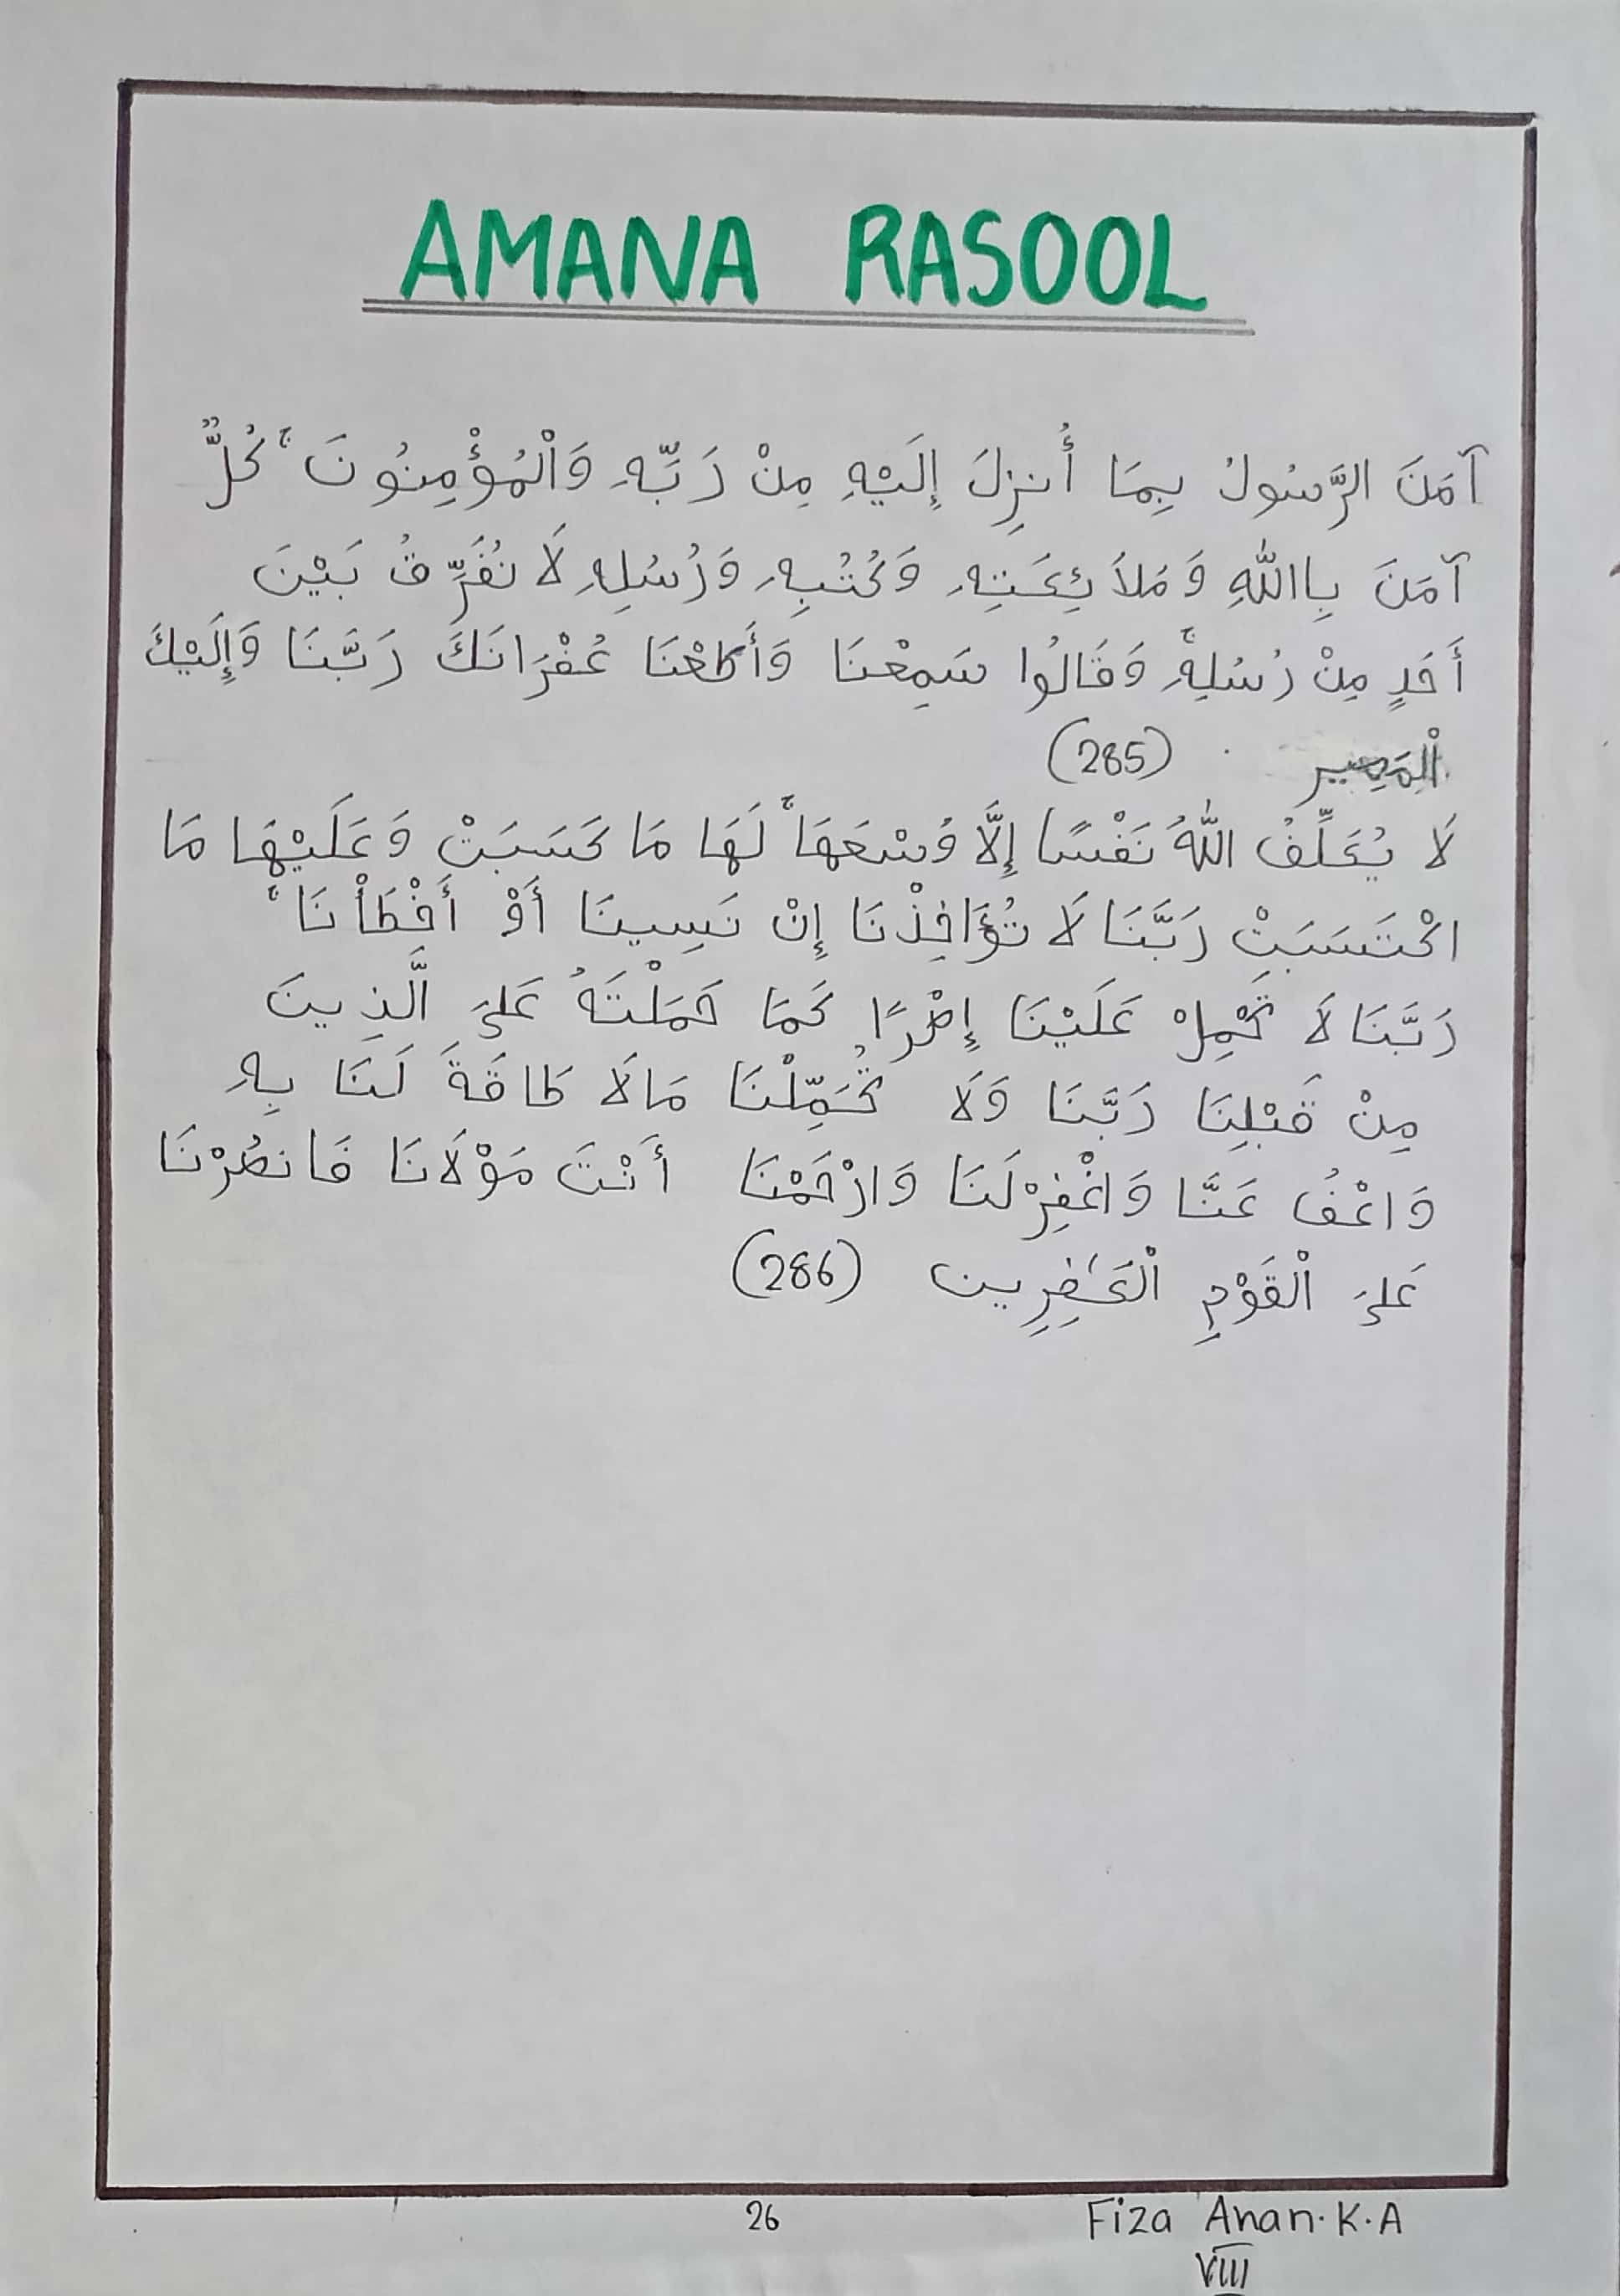 AMANA RASOOL
آمَنَ الرَّسُولُ بِمَا أُنزِلَ إِلَيْهِ مِنْ رَبِّهِ وَالْمُؤْمِنُونَ ۚ كُلٌّ
آمَنَ بِاللّٰهِ وَمَلَائِكَتِهِ وَكُتُبِهِ وَرُسُلِهِ لَا نُفَرِّقُ بَيْنَ
أَحَدٍ مِنْ رُسُلِهِ ۚ وَقَالُوا سَمِعْنَا وَأَطَعْنَا غُفْرَانَكَ رَبَّنَا وَإِلَيْكَ
الْمَصِير (285)
لَا يُكَلِّفُ اللّٰهُ نَفْسًا إِلَّا وُسْعَهَا ۚ لَهَا مَا كَسَبَتْ وَعَلَيْهَا مَا
اكْتَسَبَتْ رَبَّنَا لَا تُؤَاخِذْنَا إِنْ نَسِينَا أَوْ أَخْطَأْنَا ۚ
رَبَّنَا لَا تَحْمِلْ عَلَيْنَا إِصْرًا كَمَا حَمَلْتَهُ عَلَى الَّذِينَ
مِنْ قَبْلِنَا رَبَّنَا وَلَا تُحَمِّلْنَا مَا لَا طَاقَةَ لَنَا بِهِ
وَاعْفُ عَنَّا وَاغْفِرْ لَنَا وَارْحَمْنَا أَنْتَ مَوْلَانَا فَانصُرْنَا
عَلَى الْقَوْمِ الْكٰفِرِين (286)
26
Fiza Anan.K.A
VIII